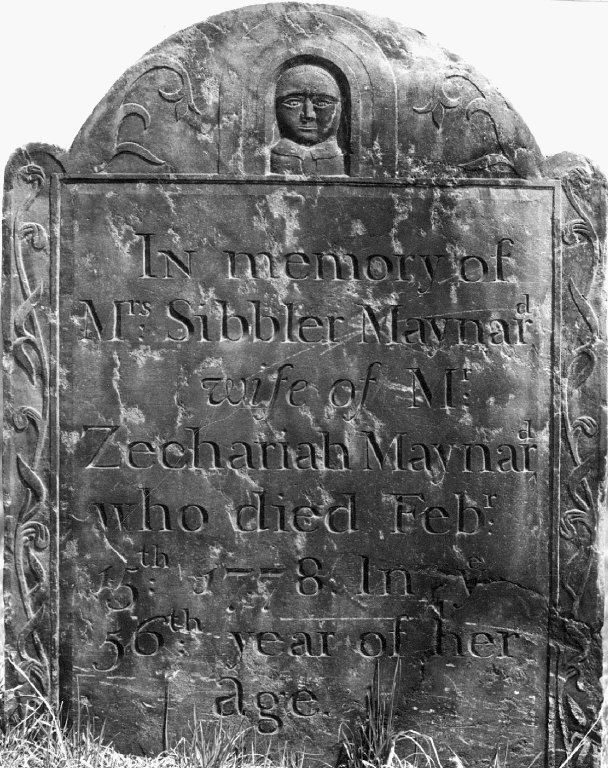 In memory of
Mrs: Sibbler Maynard
wife of Mr:
Zechariah Maynard
who died Febr:
15th: 1778. In ye
56th: year of her
age.